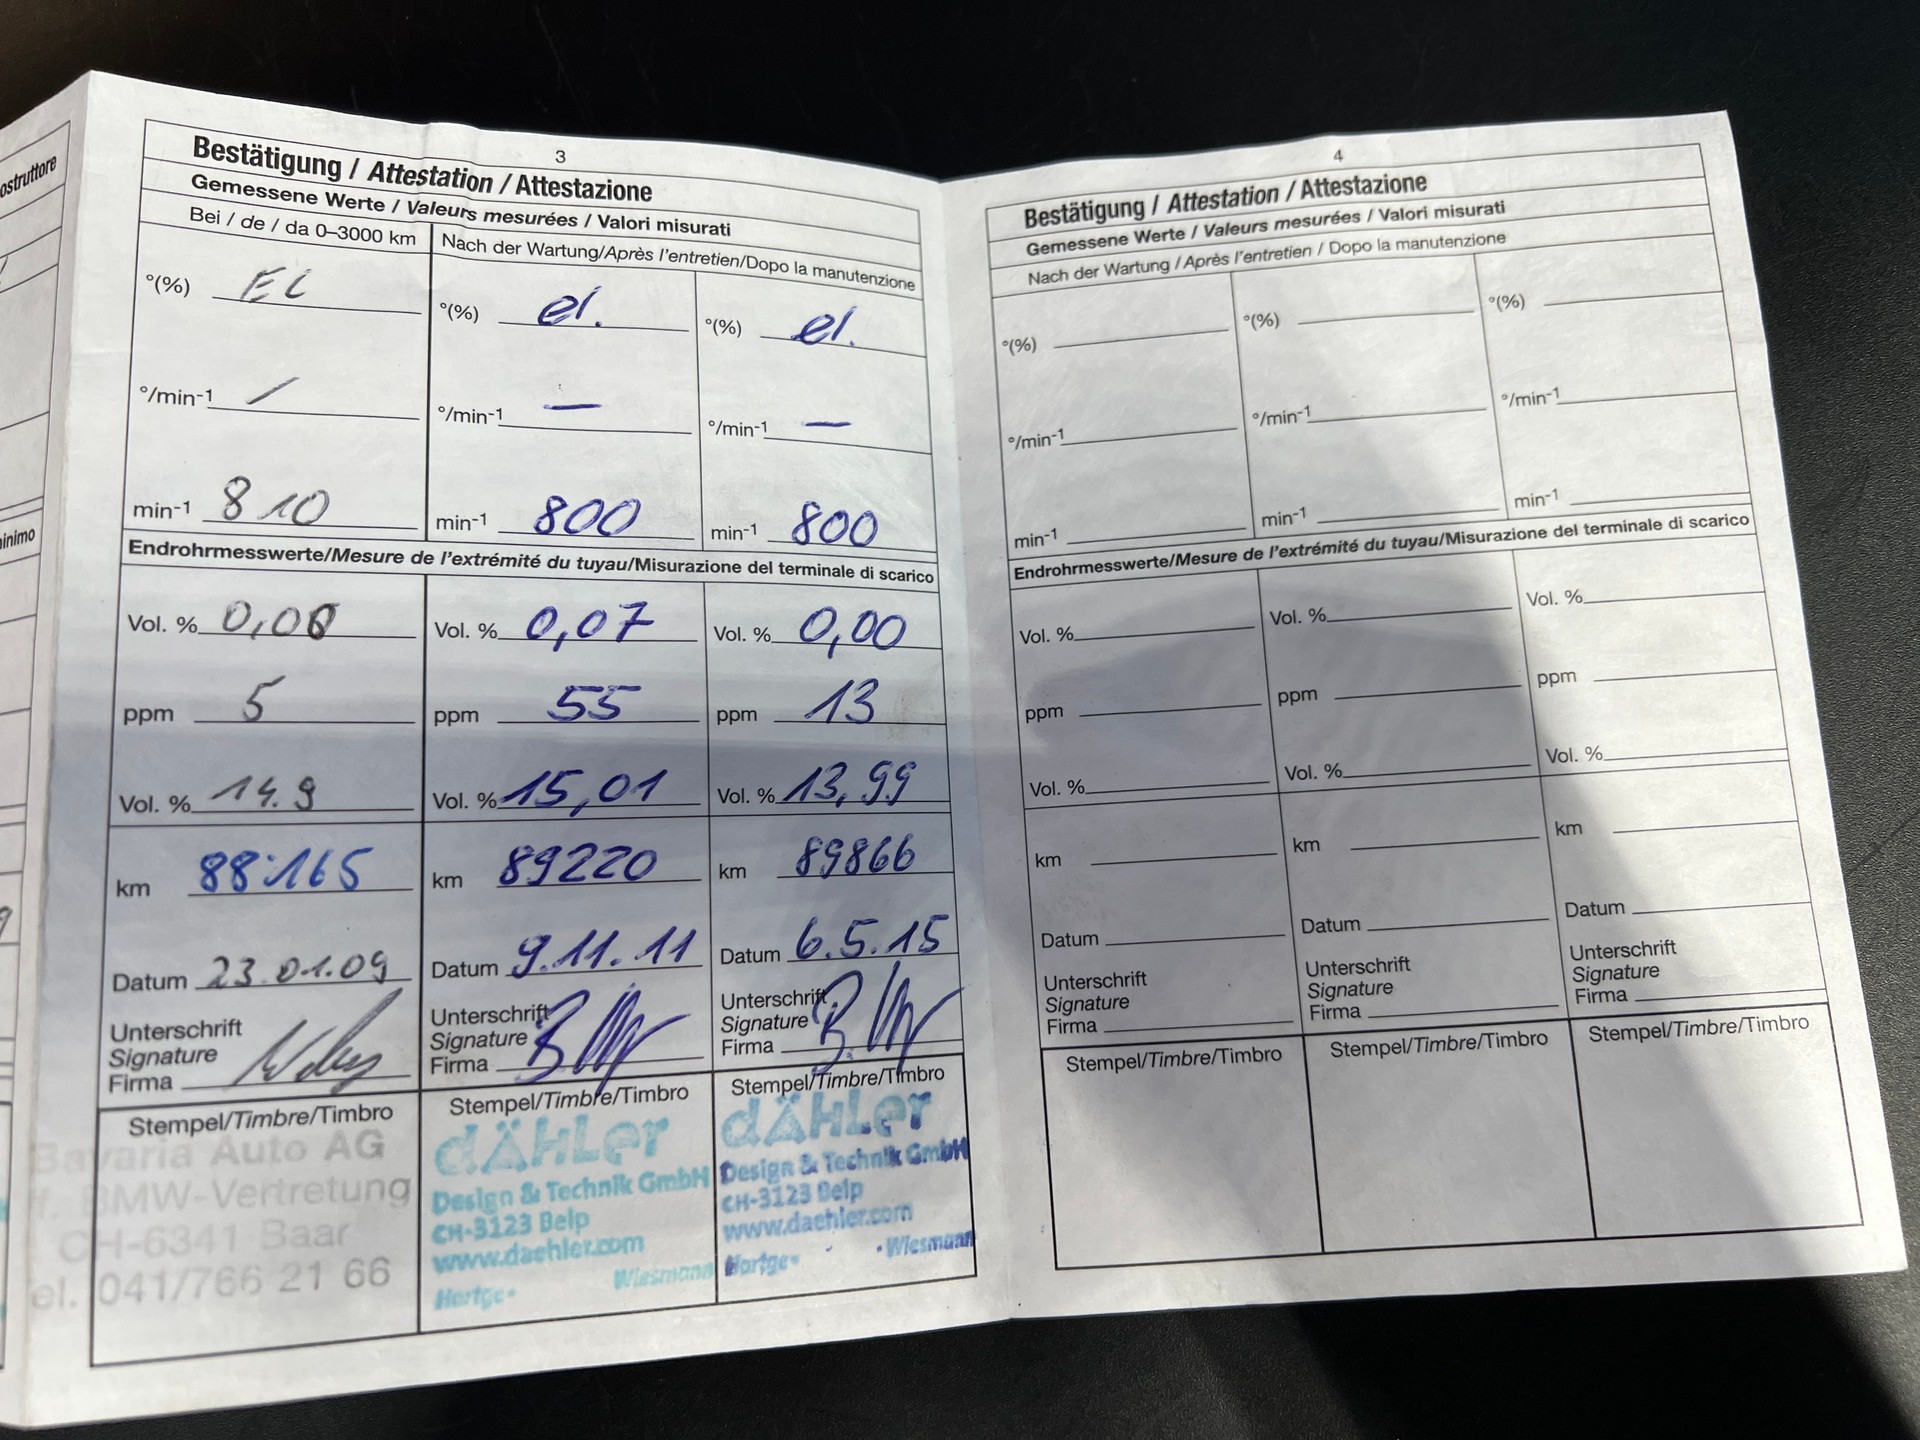 ostruttore
inimo
3
Bestätigung / Attestation / Attestazione
Gemessene Werte / Valeurs mesurées / Valori misurati
Bei / de / da 0–3000 km
Nach der Wartung/Après l'entretien/Dopo la manutenzione
°(%) EL
°(%) el.
°(%) el.
°/min-1 /
°/min-1 —
°/min-1 —
min-1 810
min-1 800
min-1 800
Endrohrmesswerte/Mesure de l'extrémité du tuyau/Misurazione del terminale di scarico
Vol. % 0,00
Vol. % 0,07
Vol. % 0,00
ppm 5
ppm 55
ppm 13
Vol. % 14.9
Vol. % 15,01
Vol. % 13,99
km 88'165
km 89220
km 89866
Datum 23.01.09
Datum 9.11.11
Datum 6.5.15
Unterschrift
Signature
Firma
Unterschrift
Signature
Firma
Unterschrift
Signature
Firma
Stempel/Timbre/Timbro
Bavaria Auto AG
ff. BMW-Vertretung
CH-6341 Baar
el. 041/766 21 66
Stempel/Timbre/Timbro
dÄHLer
Design & Technik GmbH
CH-3123 Belp
www.daehler.com
Hartge• Wiesmann
Stempel/Timbre/Timbro
dÄHLer
Design & Technik GmbH
CH-3123 Belp
www.daehler.com
Hartge• •Wiesmann
4
Bestätigung / Attestation / Attestazione
Gemessene Werte / Valeurs mesurées / Valori misurati
Nach der Wartung / Après l'entretien / Dopo la manutenzione
°(%)
°(%)
°(%)
°/min-1
°/min-1
°/min-1
min-1
min-1
min-1
Endrohrmesswerte/Mesure de l'extrémité du tuyau/Misurazione del terminale di scarico
Vol. %
Vol. %
Vol. %
ppm
ppm
ppm
Vol. %
Vol. %
Vol. %
km
km
km
Datum
Datum
Datum
Unterschrift
Signature
Firma
Unterschrift
Signature
Firma
Unterschrift
Signature
Firma
Stempel/Timbre/Timbro
Stempel/Timbre/Timbro
Stempel/Timbre/Timbro